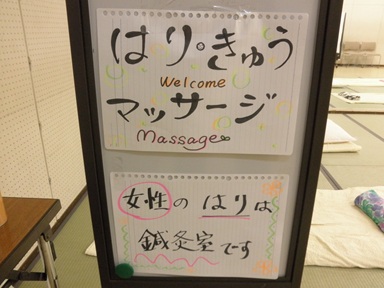 はり・きゅう
Welcome
マッサージ
Massage
女性のはりは
鍼灸室です